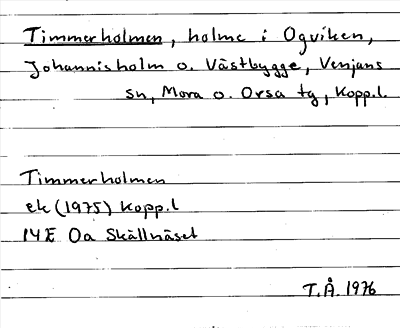 Timmerholmen, holme i Ogviken,
Johannisholm o. Västbygge, Venjans
sn, Mora o. Orsa tg, Kopp.l.
Timmerholmen
ek (1975) Kopp.l
14E 0a Skällnäset
T.Å. 1976